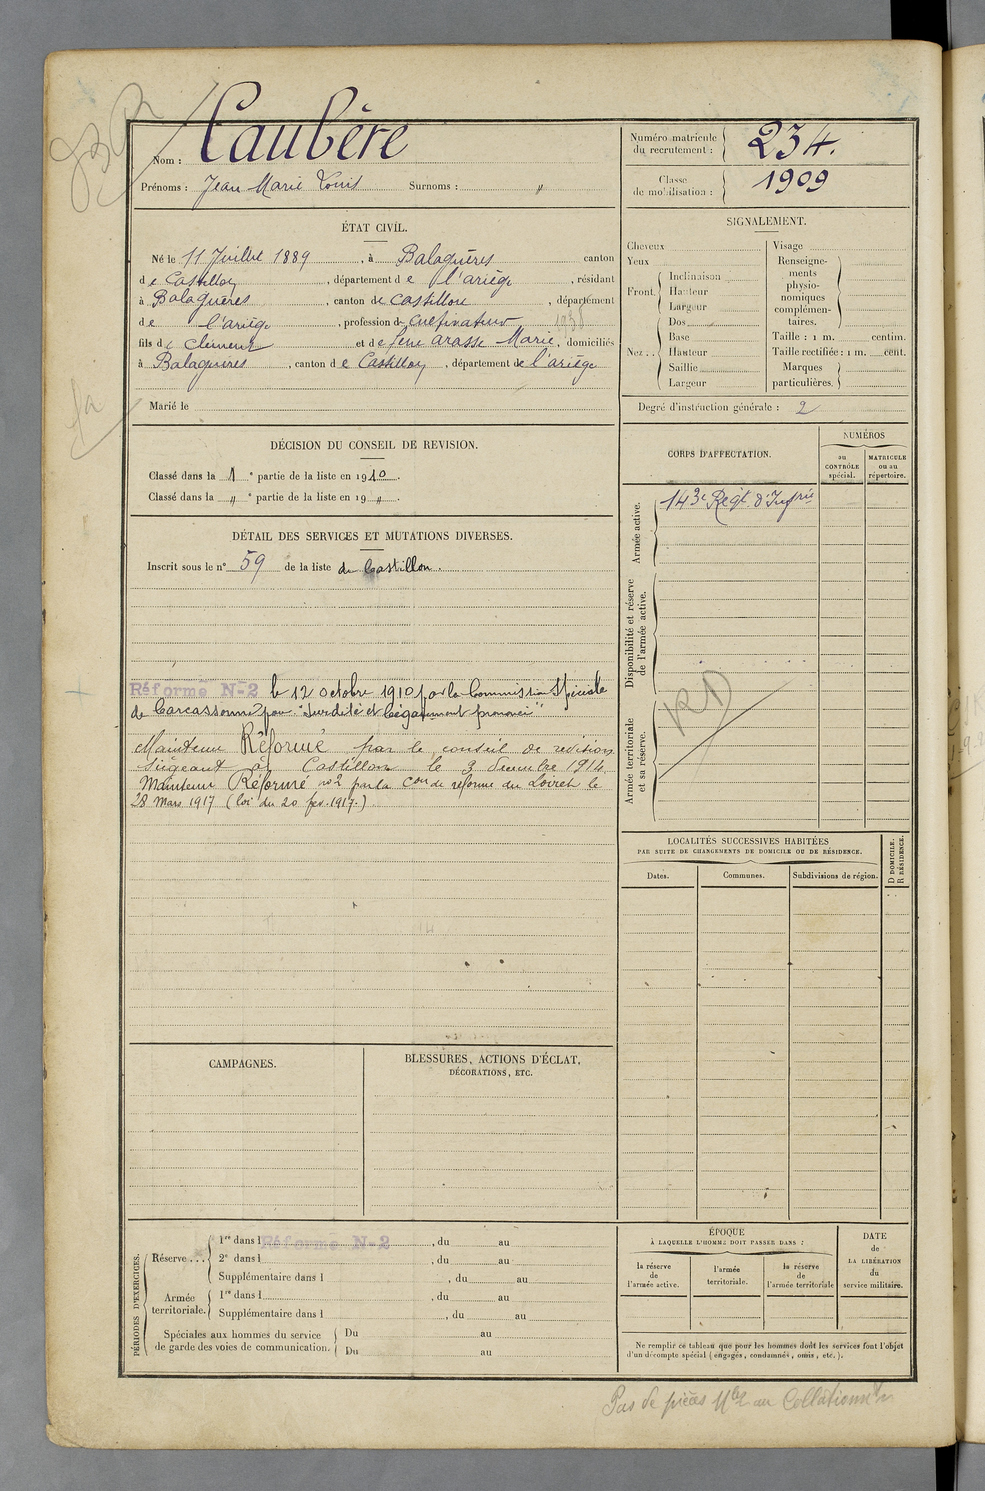 Nom : Caubère
Prénoms : Jean Marie Louis Surnoms : "
Numéro matricule du recrutement : 234.
Classe de mobilisation : 1909
ÉTAT CIVIL.
Né le 11 Juillet 1889, à Balaguères canton
de Castillon, département de l'ariège, résidant
à Balaguères, canton de Castillon, département
de l'ariège, profession de cultivateur
fils de Clément et de feue arasse Marie, domiciliés
à Balaguères, canton de Castillon, département de l'ariège
Marié le
SIGNALEMENT.
Cheveux
Yeux
Front. Inclinaison
Hauteur
Largeur
Nez. Dos
Base
Hauteur
Saillie
Largeur
Visage
Renseigne-
ments
physio-
nomiques
complémen-
taires.
Taille : 1 m. centim.
Taille rectifiée : 1 m. cent.
Marques
particulières.
Degré d'instruction générale : 2
DÉCISION DU CONSEIL DE REVISION.
Classé dans la 1e partie de la liste en 1910.
Classé dans la " e partie de la liste en 19 ".
DÉTAIL DES SERVICES ET MUTATIONS DIVERSES.
Inscrit sous le n° 59 de la liste de Castillon.
Réformé N°2 le 12 octobre 1910 par la Commission Spéciale
de Carcassonne pour "Surdité et bégaiement prononcé"
Maintenu Réformé par le conseil de revision
siégeant à Castillon le 3 décembre 1914
Maintenu Réformé n°2 par la Con de réforme du Loiret le
28 Mars 1917 (loi du 20 fev. 1917.)
CORPS D'AFFECTATION.
NUMÉROS
au CONTRÔLE spécial.
MATRICULE ou au répertoire.
Armée active.
143e Régt d'Infrie
Disponibilité et réserve de l'armée active.
Armée territoriale et sa réserve.
RD
LOCALITÉS SUCCESSIVES HABITÉES
PAR SUITE DE CHANGEMENTS DE DOMICILE OU DE RÉSIDENCE.
D DOMICILE.
R RÉSIDENCE.
Dates. Communes. Subdivisions de région.
CAMPAGNES.
BLESSURES, ACTIONS D'ÉCLAT,
DÉCORATIONS, ETC.
PÉRIODES D'EXERCICES.
Réserve... 1re dans l Réformé N°2, du au
2e dans l, du au
Supplémentaire dans l, du au
Armée territoriale. 1re dans l, du au
Supplémentaire dans l, du au
Spéciales aux hommes du service
de garde des voies de communication. Du au
Du au
ÉPOQUE
À LAQUELLE L'HOMME DOIT PASSER DANS :
la réserve de l'armée active.
l'armée territoriale.
la réserve de l'armée territoriale
DATE
de
LA LIBÉRATION
du
service militaire.
Ne remplir ce tableau que pour les hommes dont les services font l'objet
d'un décompte spécial (engagés, condamnés, omis, etc.).
Pas de pièces